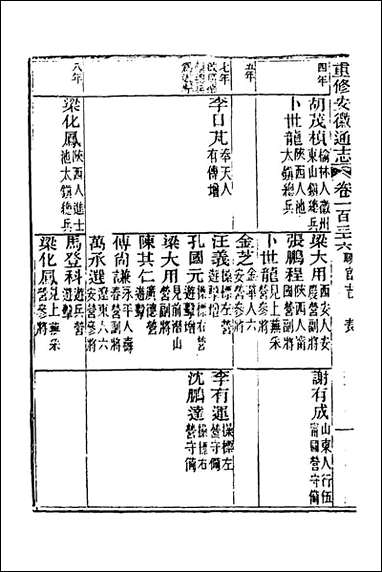 重修安徽通志 卷一百三十六 職官志 表
四年
胡茂楨 榆林人徽州東山鎮總兵
卜世龍 陝西人池太鎮總兵
梁大用 西安人安慶營副將
張鵬程 陝西人甯國營副將
卜世龍 見上蕪采營參將
謝有成 山東人行伍甯國營守備
五年
金芝 金華人六安營參將
七年
李日芃 奉天人有傳增
汪義 操標左營遊擊增
孔國元 操標右營遊擊增
梁大用 見前潛山營副將
陳其仁 廣德營遊擊
傅尚謙 永平人壽春營副將
萬承選 遼東人六安營參將
李有運 操標左營守備
沈鵬達 操標右營守備
八年
梁化鳳 陝西人進士池太鎮總兵
馬登科 遊兵營遊擊
梁化鳳 見上蕪采營參將